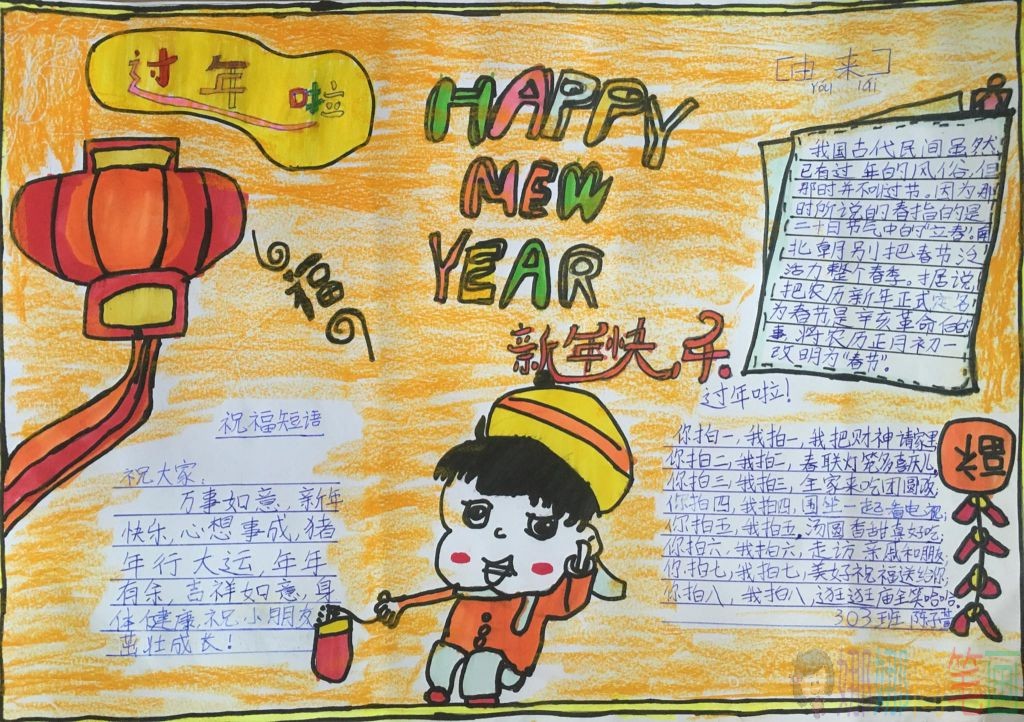 过年啦
HAPPY
MEW
YEAR
新年快乐
福
[由来]
YOU lai
我国古代民间虽然
已有过年的风俗,但
那时并不叫过节。因为那
时所说的春指的是
二十四节气中的“立春”,南
北朝别把春节泛
活力整个春季。据说,
把农历新年正式定名
为春节是辛亥革命后的
事,将农历正月初一
改明为“春节”。
祝福短语
祝大家:
万事如意、新年
快乐,心想事成,猪
年行大运,年年
有余,吉祥如意,身
体健康,祝小朋友
茁壮成长!
过年啦!
你拍一,我拍一,我把财神请家里,
你拍二,我拍二,春联灯笼多喜庆儿,
你拍三,我拍三,全家来吃团圆饭,
你拍四,我拍四,围坐一起看电视,
你拍五,我拍五,汤圆香甜真好吃,
你拍六,我拍六,走访亲戚和朋友
你拍七,我拍七,美好祝福送给你,
你拍八,我拍八,逛逛庙会笑哈哈。
303班 陈子萱